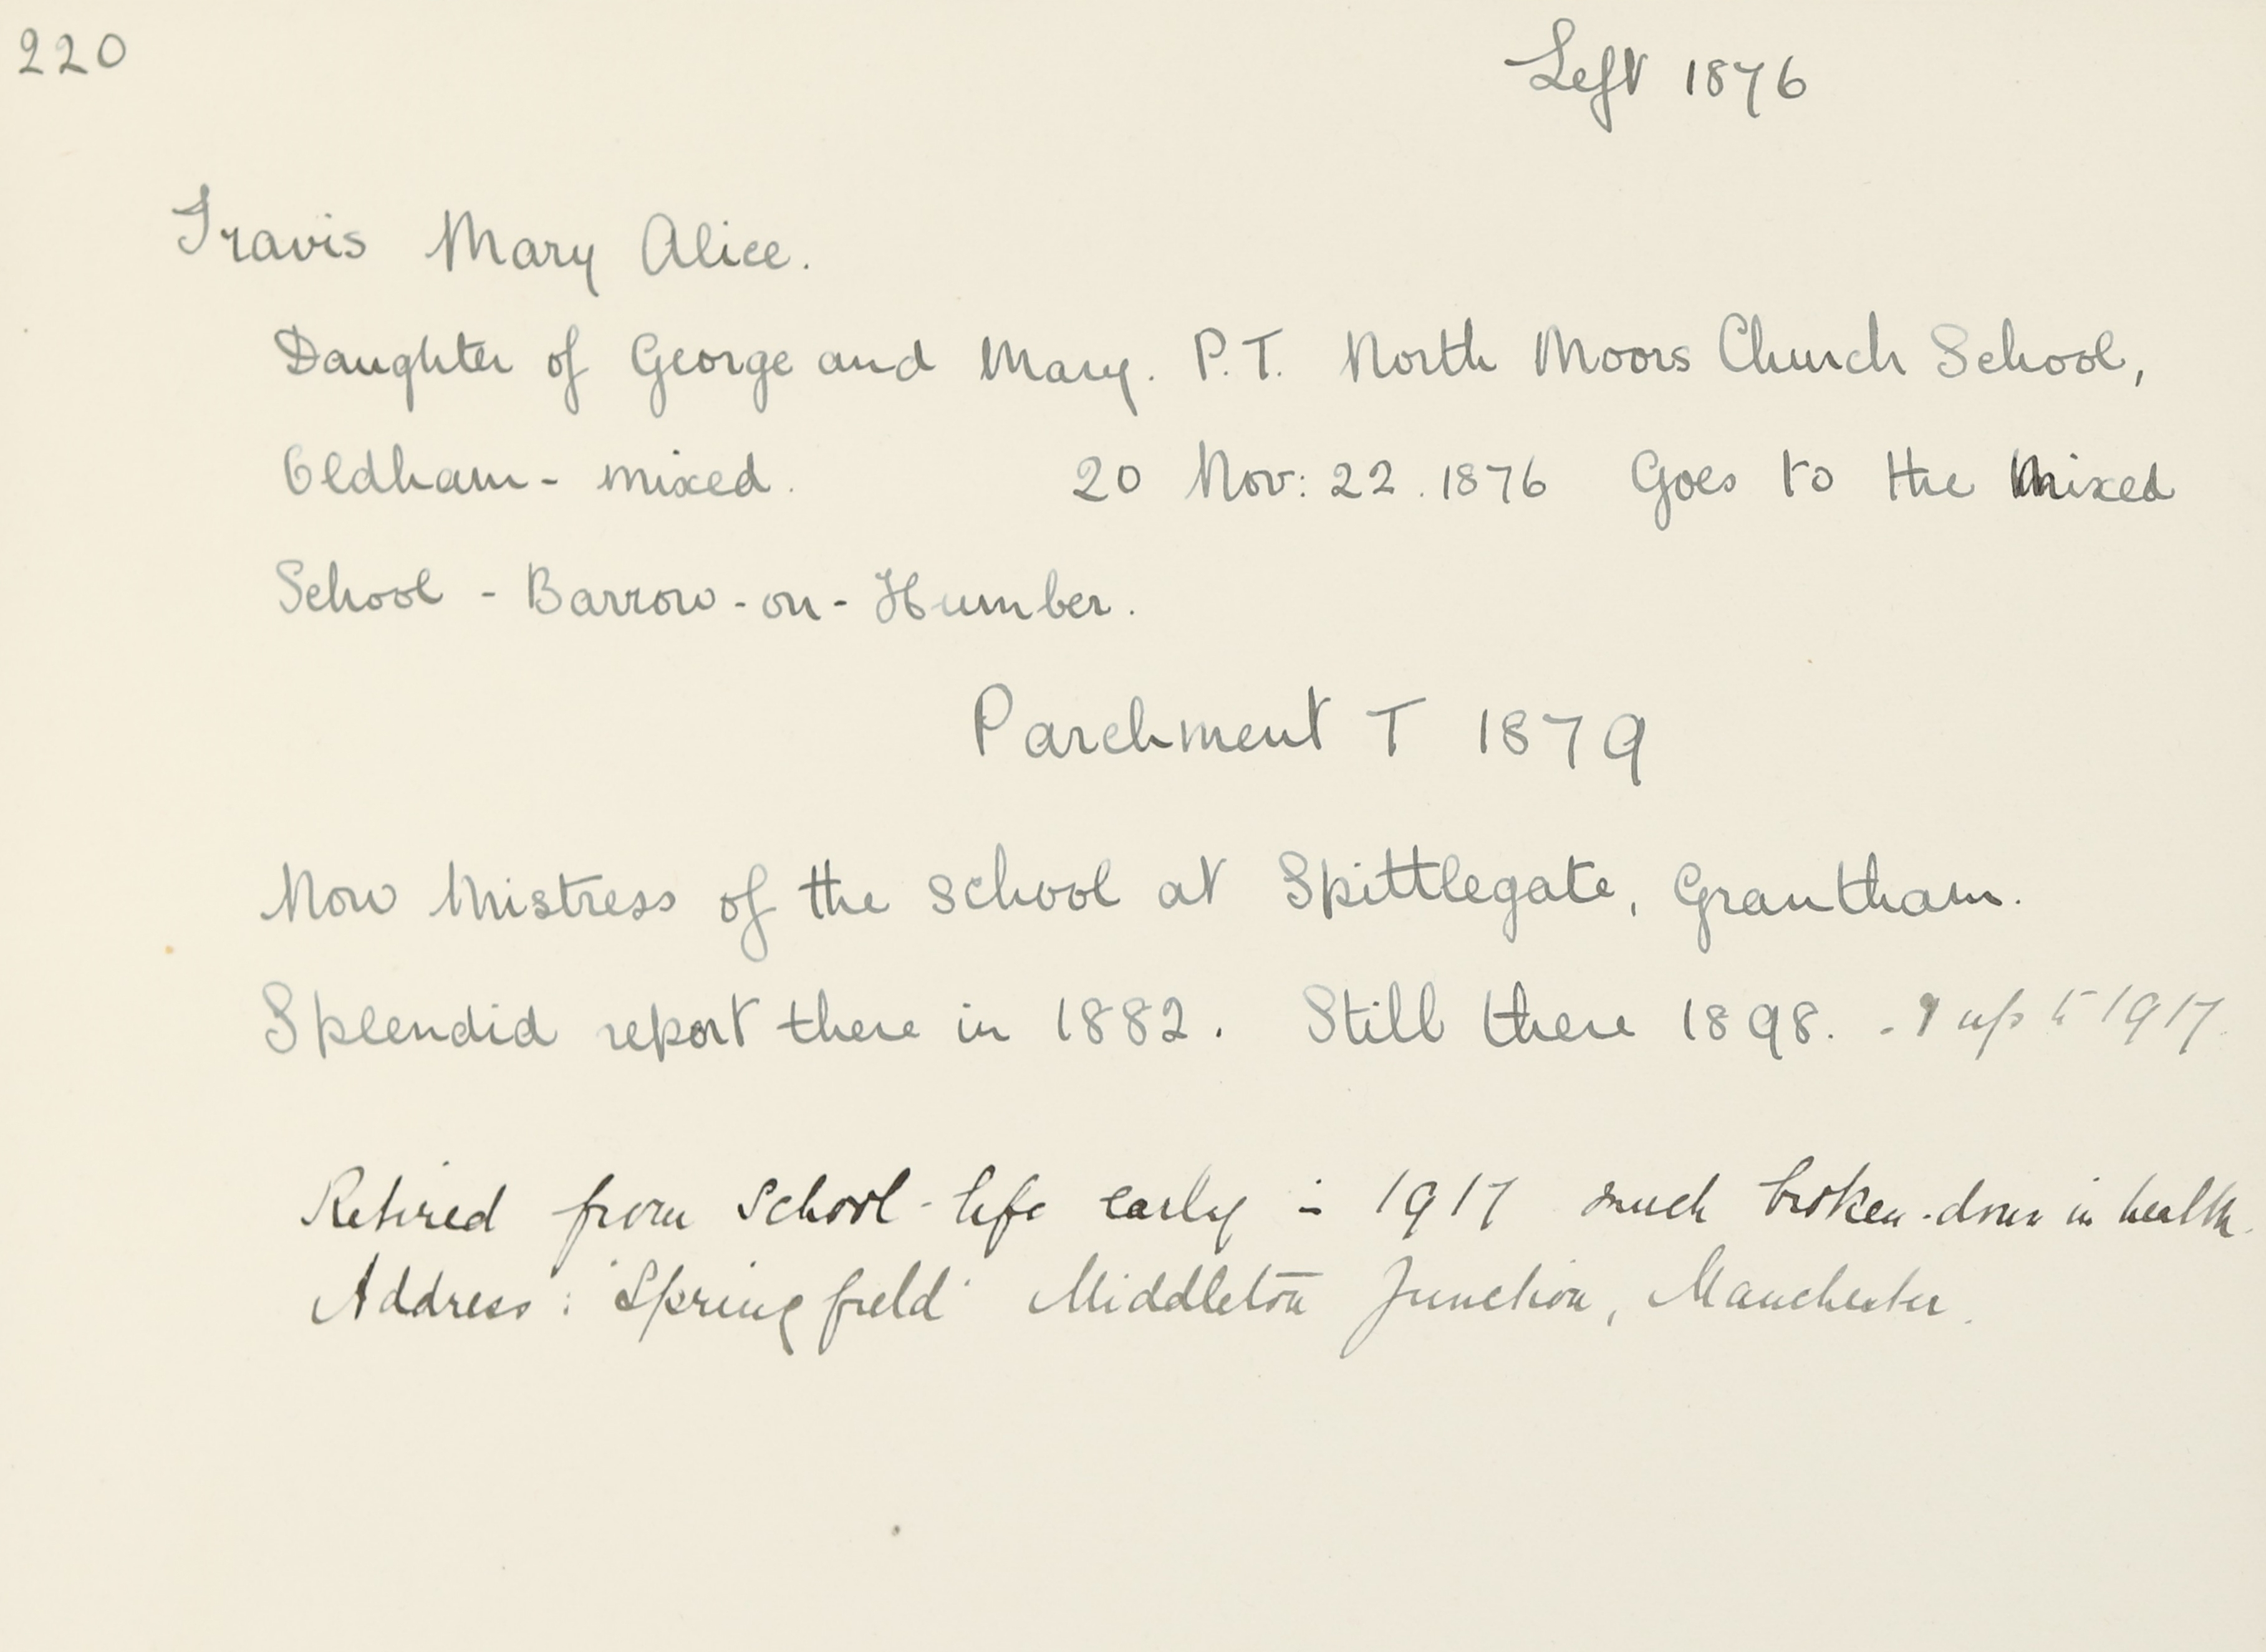 220
Left 1876
Travis Mary Alice.
Daughter of George and Mary. P.T. North Moors Church School,
Oldham - mixed. 20 Nov: 22. 1876 Goes to the Mixed
School - Barrow-on-Humber.
Parchment T 1879
Now Mistress of the school at Spittlegate, Grantham.
Splendid report there in 1882. Still there 1898. - & up to 1917.
Retired from School-life early in 1917 much broken-down in health.
Address: "Springfield" Middleton Junction, Manchester.